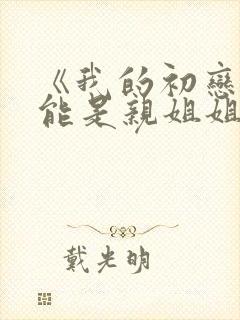 《我的初戀
能是親姐姐
戴光明